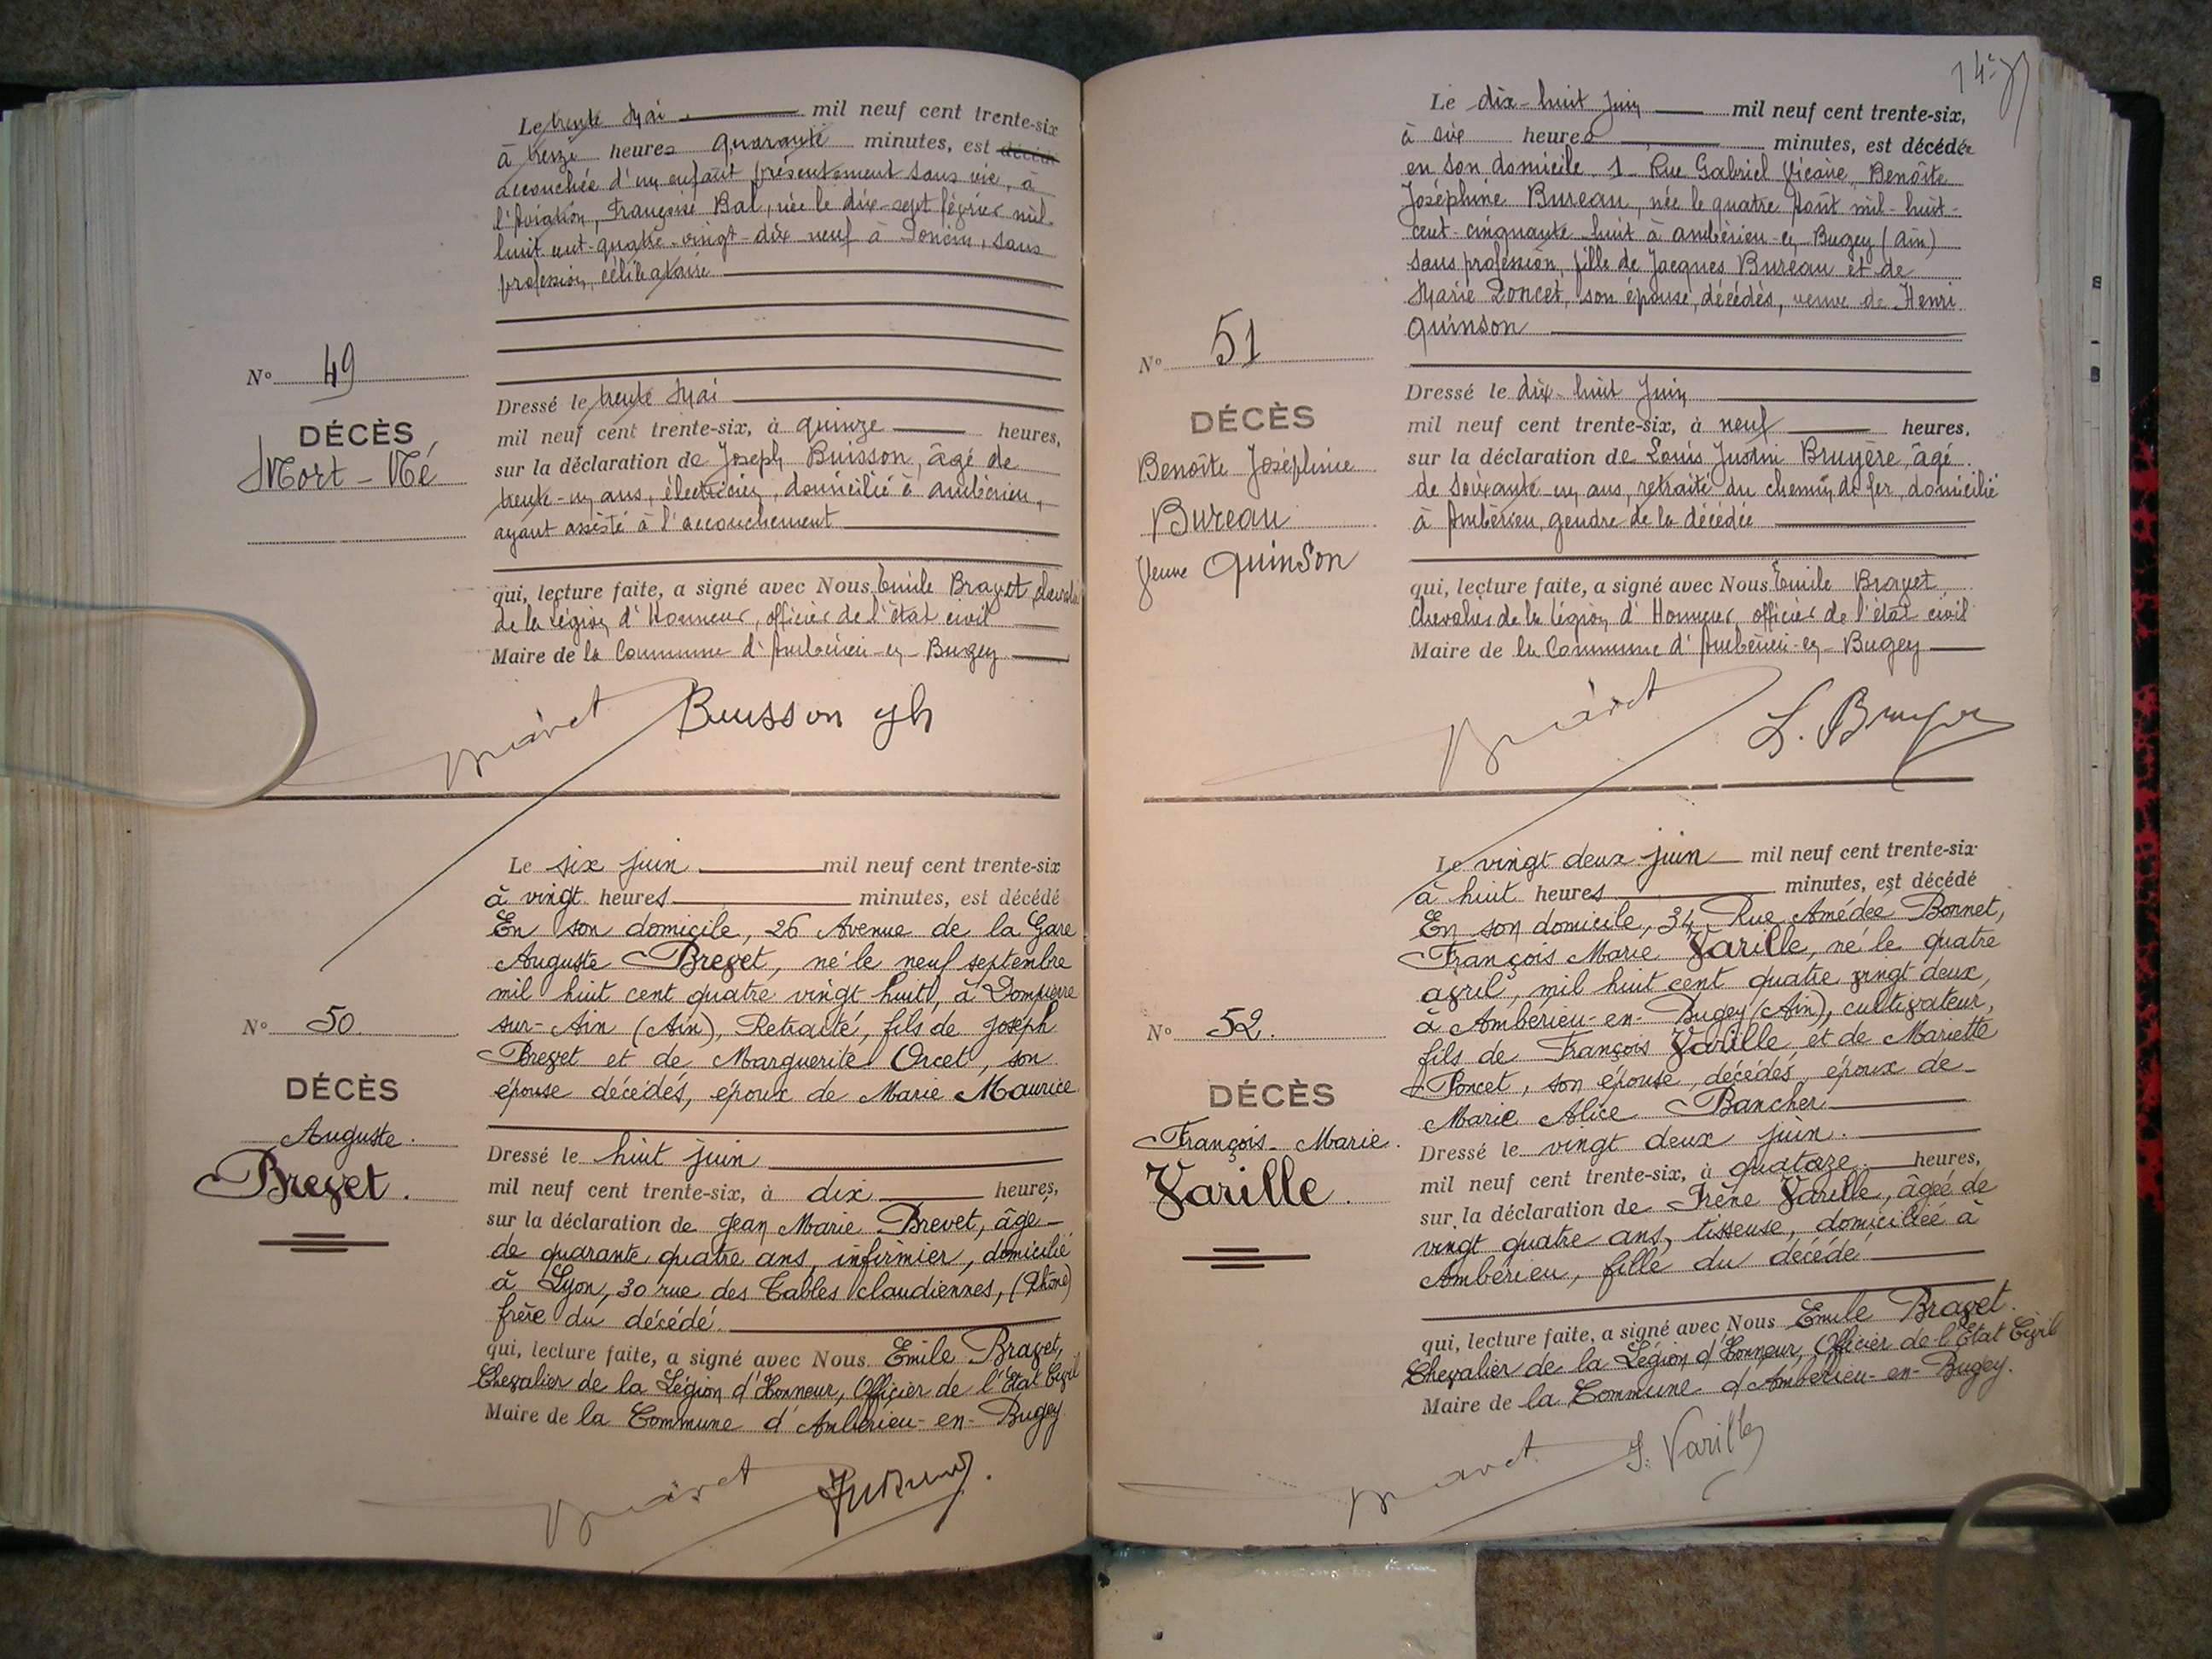 Le trente Mai mil neuf cent trente-six
à treize heures quarante minutes, est décédé
accouchée d'un enfant présentement sans vie, à
Françoise Bal, née le dix-sept février mil
huit cent quatre-vingt-dix neuf à Poncin, sans
profession, célibataire
N° 49
DÉCÈS
Mort-Né
Dressé le trente Mai
mil neuf cent trente-six, à quinze heures,
sur la déclaration de Joseph Buisson, âgé de
trente-un ans, électricien, domicilié à Ambérieu,
ayant assisté à l'accouchement
qui, lecture faite, a signé avec Nous Emile Bravet, chevalier
de la Légion d'Honneur, officier de l'état civil
Maire de la Commune d'Ambérieu-en-Bugey
Bravet Buisson Jh
Le six juin mil neuf cent trente-six
à vingt heures minutes, est décédé
En son domicile, 26 Avenue de la Gare
Auguste Brevet, né le neuf septembre
mil huit cent quatre vingt huit, à Dompierre
sur-Ain (Ain), Retraité, fils de Joseph
Brevet et de Marguerite Orcet, son
épouse décédés, époux de Marie Maurice
N° 50.
DÉCÈS
Auguste.
Brevet.
Dressé le huit juin
mil neuf cent trente-six, à dix heures,
sur la déclaration de Jean Marie Brevet, âgé
de quarante quatre ans, infirmier, domicilié
à Lyon, 30 rue des Tables claudiennes, (Rhône)
frère du décédé.
qui, lecture faite, a signé avec Nous Emile Bravet,
Chevalier de la Légion d'Honneur, Officier de l'Etat Civil
Maire de la Commune d'Ambérieu-en-Bugey
Bravet
Le dix-huit Juin mil neuf cent trente-six,
à six heures minutes, est décédée
en son domicile 1 Rue Gabriel Vicaire, Benoîte
Joséphine Bureau, née le quatre Août mil-huit-
cent-cinquante-huit à Ambérieu-en-Bugey (Ain)
sans profession, fille de Jacques Bureau et de
Marie Poncet, son épouse, décédés, veuve de Henri
Quinson
N° 51
DÉCÈS
Benoîte Joséphine
Bureau
Veuve Quinson
Dressé le dix-huit Juin
mil neuf cent trente-six, à neuf heures,
sur la déclaration de Louis Justin Bruyère âgé
de soixante-un ans, retraité du chemin de fer, domicilié
à Ambérieu, gendre de la décédée
qui, lecture faite, a signé avec Nous Emile Bravet
Chevalier de la Légion d'Honneur, officier de l'état civil
Maire de la Commune d'Ambérieu-en-Bugey
Bravet L. Bruyère
Le vingt deux juin mil neuf cent trente-six
à huit heures minutes, est décédé
En son domicile, 34, Rue Amédée Bonnet,
François Marie Varille, né le quatre
avril, mil huit cent quatre vingt deux,
à Ambérieu-en-Bugey (Ain), cultivateur,
fils de François Varille et de Mariette
Poncet, son épouse, décédés, époux de
Marie Alice Bancher
N° 52.
DÉCÈS
François-Marie.
Varille.
Dressé le vingt deux juin.
mil neuf cent trente-six, à quatorze heures,
sur la déclaration de Irène Varille, âgée de
vingt quatre ans, tisseuse, domiciliée à
Ambérieu, fille du décédé
qui, lecture faite, a signé avec Nous Emile Bravet.
Chevalier de la Légion d'Honneur, Officier de l'Etat Civil
Maire de la Commune d'Ambérieu-en-Bugey.
Bravet I. Varille